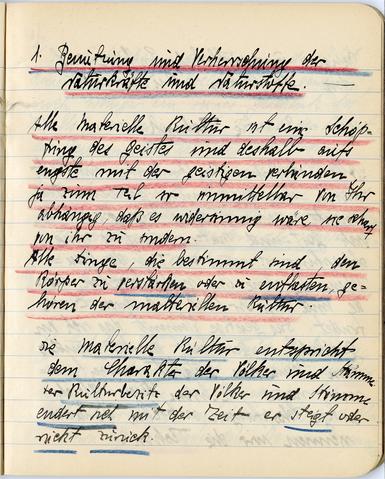 1. Benützung und Beherrschung der
Naturkräfte und Naturstoffe.
Alle materielle Kultur ist ein Schöp-
fung des Geistes und deshalb aufs
engste mit der geistigen verbunden
ja zum Teil so unmittelbar von Ihr
abhängig, daß es widersinnig wäre sie
von ihr zu
Alle Dinge, die bestimmt sind den
Körper zu verstärken oder zu entlasten, ge-
hören der materiellen Kultur.
Die materielle Kultur entspricht
dem Charakter der Völker und Stämme
der Kulturbesitz der Völker und Stämme
endert sich mit der Zeit er steigt oder
rückt zurück.